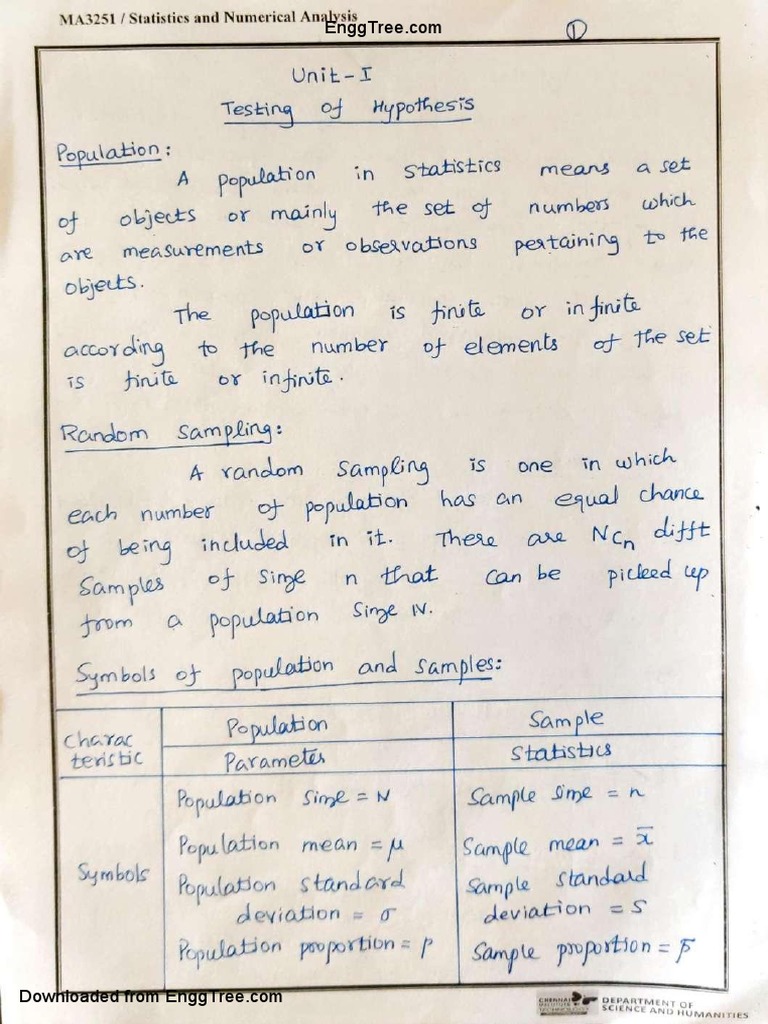 MA3251 / Statistics and Numerical Analysis
EnggTree.com
1
Unit-I
Testing of Hypothesis
Population:
A population in statistics means a set
of objects or mainly the set of numbers which
are measurements or observations pertaining to the
objects.
The population is finite or infinite
according to the number of elements of the set
is finite or infinite.
Random Sampling:
A random sampling is one in which
each number of population has an equal chance
of being included in it. There are NCn difft
Samples of size n that can be picked up
from a population Size N.
Symbols of population and samples:
Charac
teristic
Population
Sample
Parameter
Statistics
Symbols
Population size = N
Sample size = n
Population mean = μ
Sample mean = x̄
Population standard
deviation = σ
Sample standard
deviation = S
Population proportion = P
Sample proportion = p̄
Downloaded from EnggTree.com
CHENNAI
INSTITUTE
TECHNOLOGY
DEPARTMENT OF
SCIENCE AND HUMANITIES